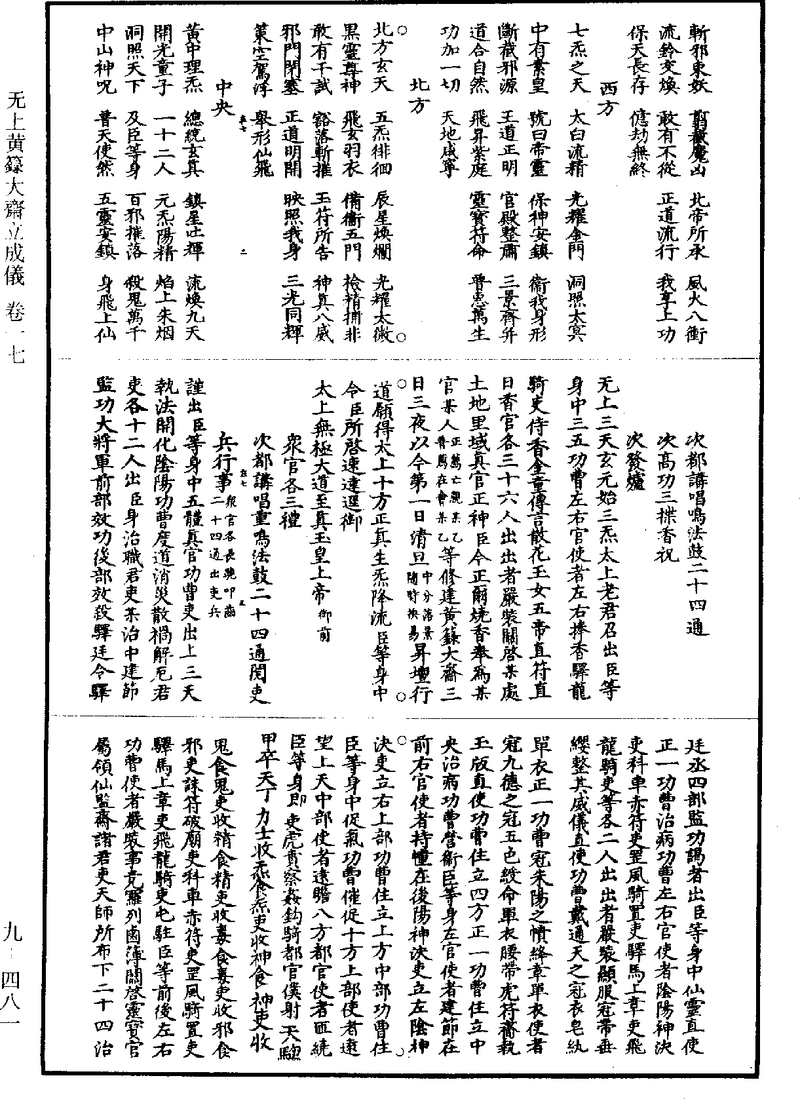 斬邪束妖　翦馘魔凶　北帝所承　風火八衝
流鈴交煥　敢有不從　正道流行　我享上功
保天長存　億劫無終
西方
七炁之天　太白流精　光耀金門　洞照太冥
中有素皇　號曰帝靈　保神安鎮　衛我身形
斷截邪源　王道正明　官殿整肅　三景齊并
道合自然　飛昇紫庭　靈寶符命　普惠萬生
功加一切　天地咸寧
北方
北方玄天　五炁徘徊　辰星煥爛　光耀太微
黑靈尊神　飛玄羽衣　備衛五門　檢精捕非
敢有干試　豁落斬摧　玉符所告　神真八威
邪門閉塞　正道明開　映照我身　三光同輝
策空駕浮　舉形仙飛
中央
黃中理炁　總統玄真　鎮星吐輝　流煥九天
開光童子　一十二人　元炁陽精　焰上朱烟
洞照天下　及臣等身　百邪摧落　殺鬼萬千
中山神呪　普天使然　五靈安鎮　身飛上仙
次都講唱鳴法鼓二十四通
次高功三楪香祝
次發爐
无上三天玄元始三炁太上老君召出臣等
身中三五功曹左右官使者左右捧香驛龍
騎吏侍香金童傳言散花玉女五帝直符直
日香官各三十六人出出者嚴裝關啓某處
土地里域真官正神臣今正爾燒香奉為某
官某人正薦亡親某乙普薦在會某乙等修建黃籙大齋三
日三夜以今第一日清旦中分落景隨時換易昇壇行
道願得太上十方正真生炁降流臣等身中
令臣所啓速達逕御
太上無極大道至真玉皇上帝御前
衆官各三禮
次都講唱重鳴法鼓二十四通閱吏
兵行事衆官各長跪叩齒二十四通出吏兵
謹出臣等身中五體真官功曹吏出上三天
執法開化陰陽功曹度道消災散禍解厄君
吏各十二人出臣身治職君吏某治中建節
監功大將軍前部效功後部效殺驛廷令驛
廷丞四部監功謁者出臣等身中仙靈直使
正一功曹治病功曹左右官使者陰陽神決
吏科車赤符吏罡風騎置吏驛馬上章吏飛
龍騎吏等各二人出出者嚴裝顯服冠帶垂
纓整其威儀直使功曹戴通天之冠衣皂紈
單衣正一功曹冠朱陽之幘絳章單衣使者
冠九德之冠五色綬命單衣腰帶虎符齎執
玉版直使功曹住立四方正一功曹住立中
央治病功曹營衛臣等身左官使者建節在
前右官使者持幢在後陽神決吏立左陰神
決吏立右上部功曹住立上方中部功曹住
臣等身中促氣功曹催促十方上部使者遠
望上天中部使者遠瞻八方都官使者匝繞
臣等身即吏虎賁察姦鈎騎都官僕射天騶
甲卒天丁力士收炁食炁吏收神食神吏收
鬼食鬼吏收精食精吏收毒食毒吏收邪食
邪吏誅符破廟吏科車赤符吏罡風騎置吏
驛馬上章吏飛龍騎吏屯駐臣等前後左右
功曹使者嚴裝事竟羅列鹵簿關啓靈寶官
屬領仙監齋諸君吏天師所布下二十四治
无上黃籙大齋立成儀　卷一七
九－四八一